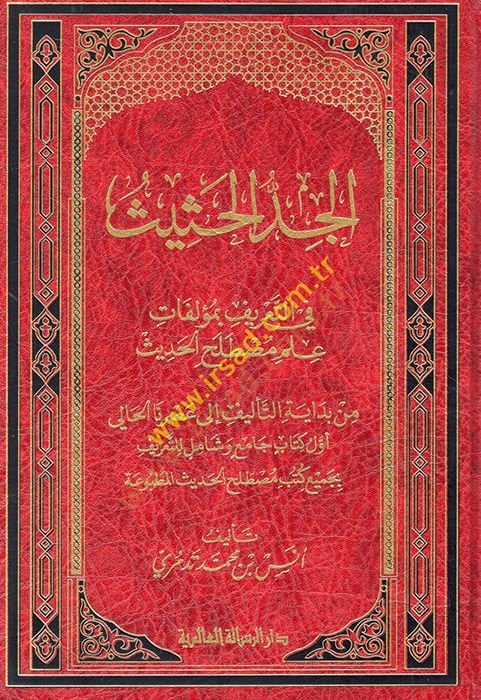 الجِدُّ الحَثِيثُ
في التَّعريف بمؤلفات
علم مصطلح الحديث
من بداية التأليف إلى عصرنا الحالي
أول كتاب جامع وشامل للتعريف
بجميع كتب مصطلح الحديث المطبوعة
تأليف
أنس بن محمد تدمري
دار الرسالة العالمية
www.irsad.com.tr